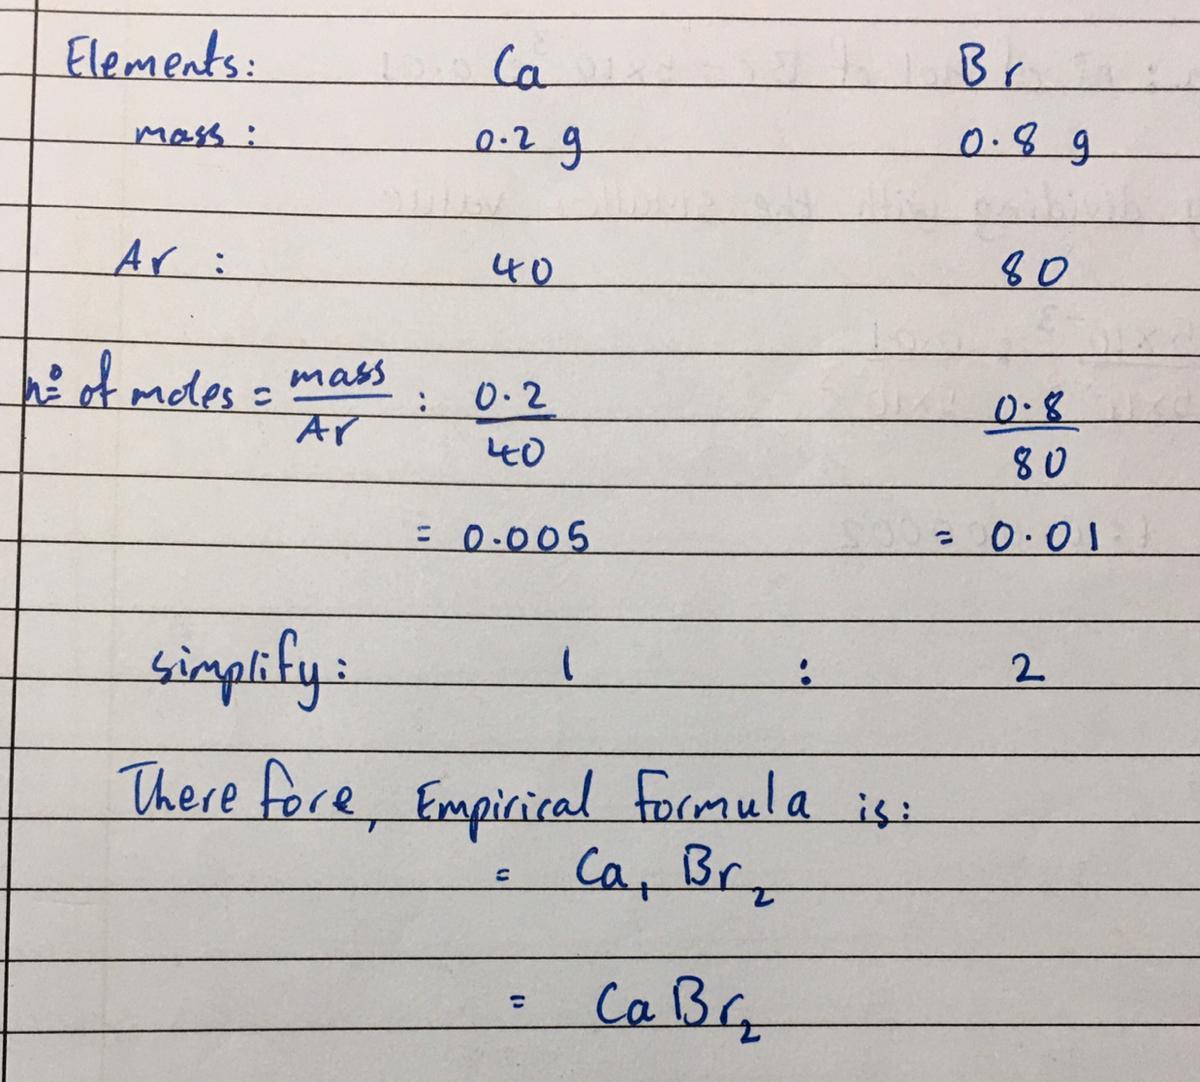 Elements: Ca Br
mass: 0.2 g 0.8 g
Ar : 40 80
nº of moles = mass/Ar : 0.2/40 0.8/80
= 0.005 = 0.01
simplify: 1 : 2
Therefore, Empirical formula is:
= Ca₁ Br₂
= CaBr₂